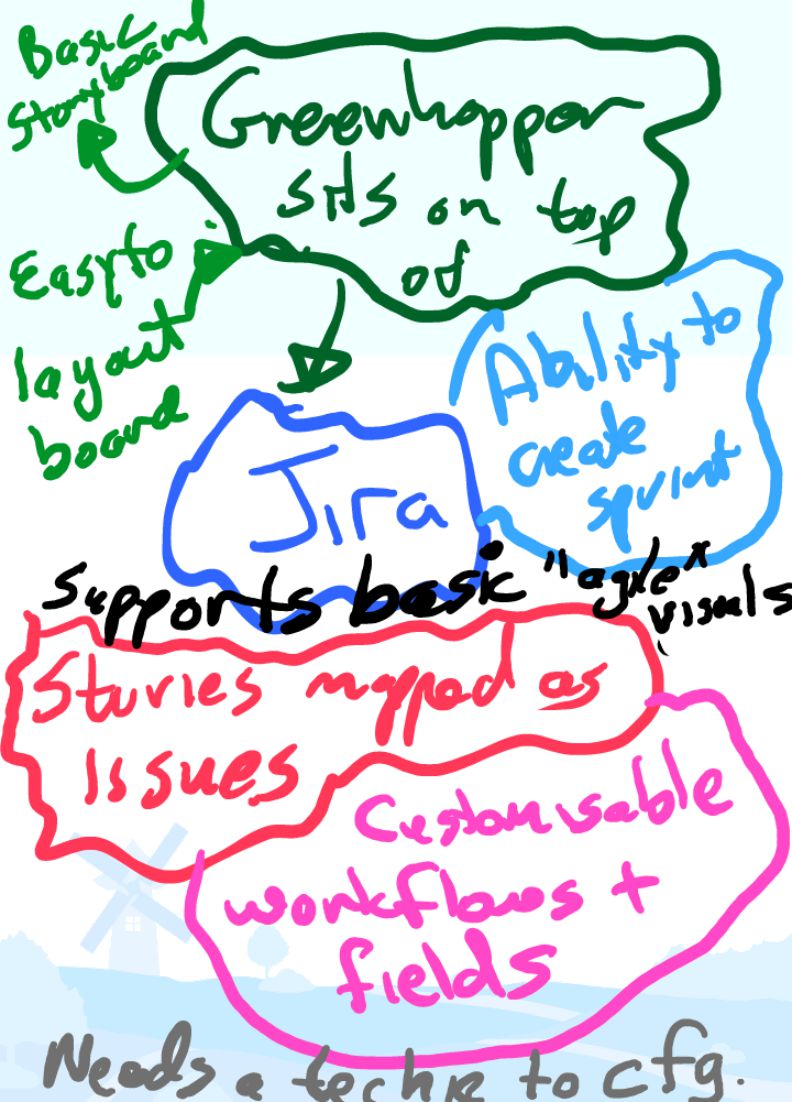 Basic
Storyboard
Greenhopper
sits on top
of
Easy to
layout
board
Ability to
create
sprint
Jira
Supports basic "agile"
visuals
Stories mapped as
issues
Customisable
workflows +
fields
Needs a techie to cfg.